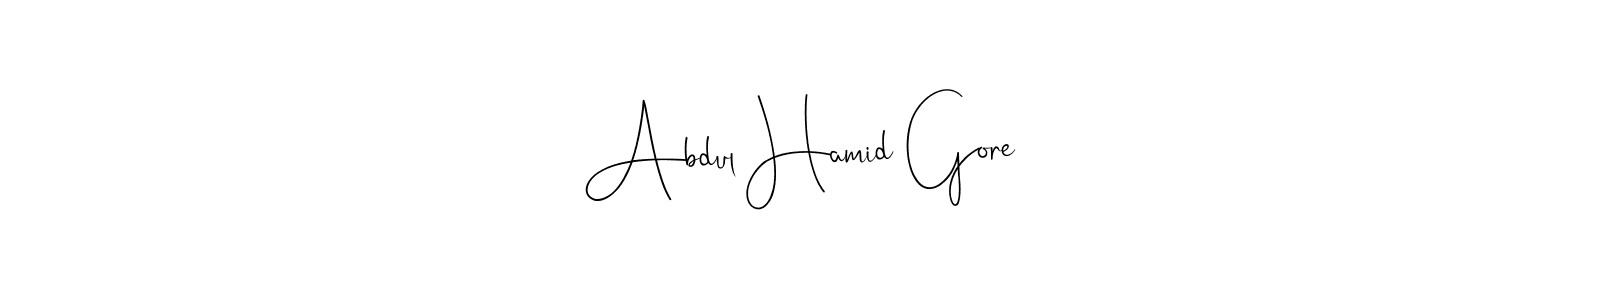 Abdul Hamid Gore